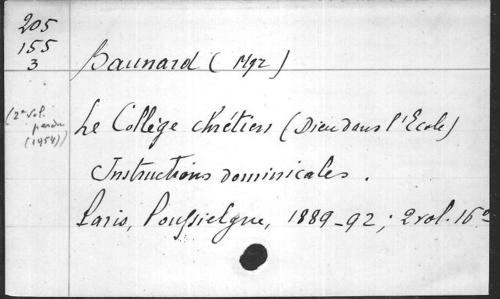 205
155
3
Baunard (Mgr)
(2e vol.
perdu
(1954))
Le Collège chrétien (Dieu dans l'Ecole)
Instructions dominicales.
Paris, Poussielgue, 1889-92; 2 vol. 16°